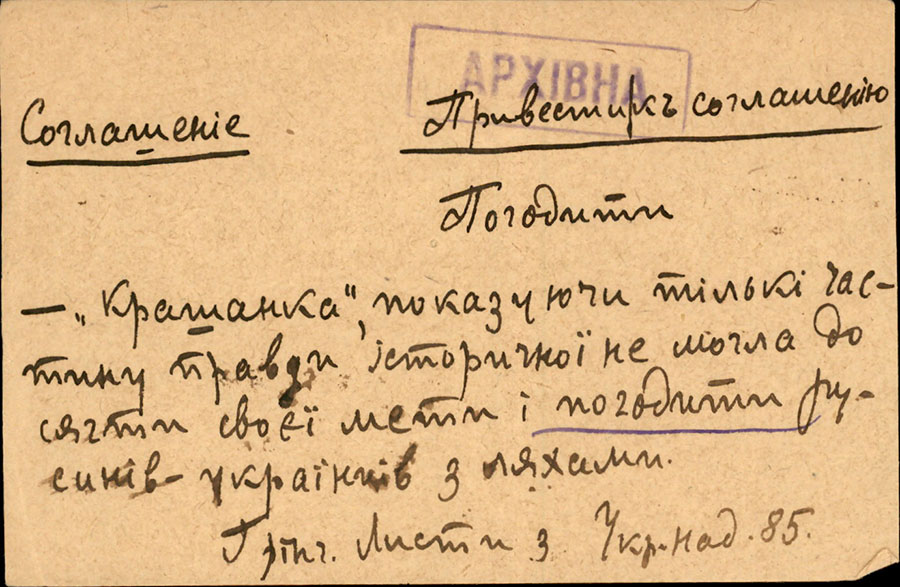 АРХІВНА
Соглашеніе
Привести къ соглашенію
Погодити
— „Крашанка", показуючи тількі час-
тину правди історичної не могла до
сягти своєї мети і погодити ру-
синів-українців з ляхами.
Грінч. Листи з Укр. над. 85.